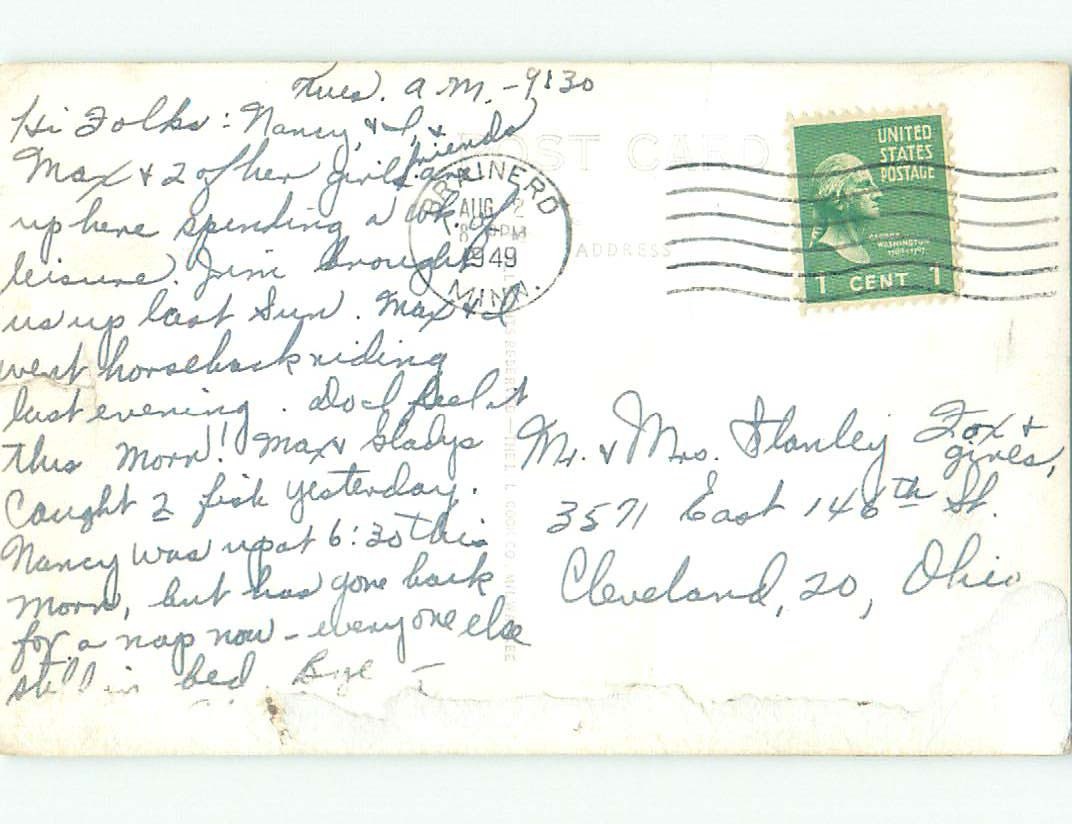 Tues. A.M. - 9:30
Hi Folks: Nancy, & I, &
Max & 2 of her girl friends are
up here spending a wk. of
leisure. Jim brought
us up last Sun. Max & I
went horseback riding
last evening. Do I feel it
this Morn! Max & Gladys
Caught 2 fish yesterday.
Nancy was up at 6:30 this
Morn, but has gone back
for a nap now - everyone else
still in bed. Bye -
POST CARD
ADDRESS
BRAINERD
AUG 2
8 PM
1949
MINN.
UNITED
STATES
POSTAGE
GEORGE
WASHINGTON
1789-1797
1 CENT 1
Mr. & Mrs. Stanley Fox &
girls,
3571 East 148th St.
Cleveland, 20, Ohio